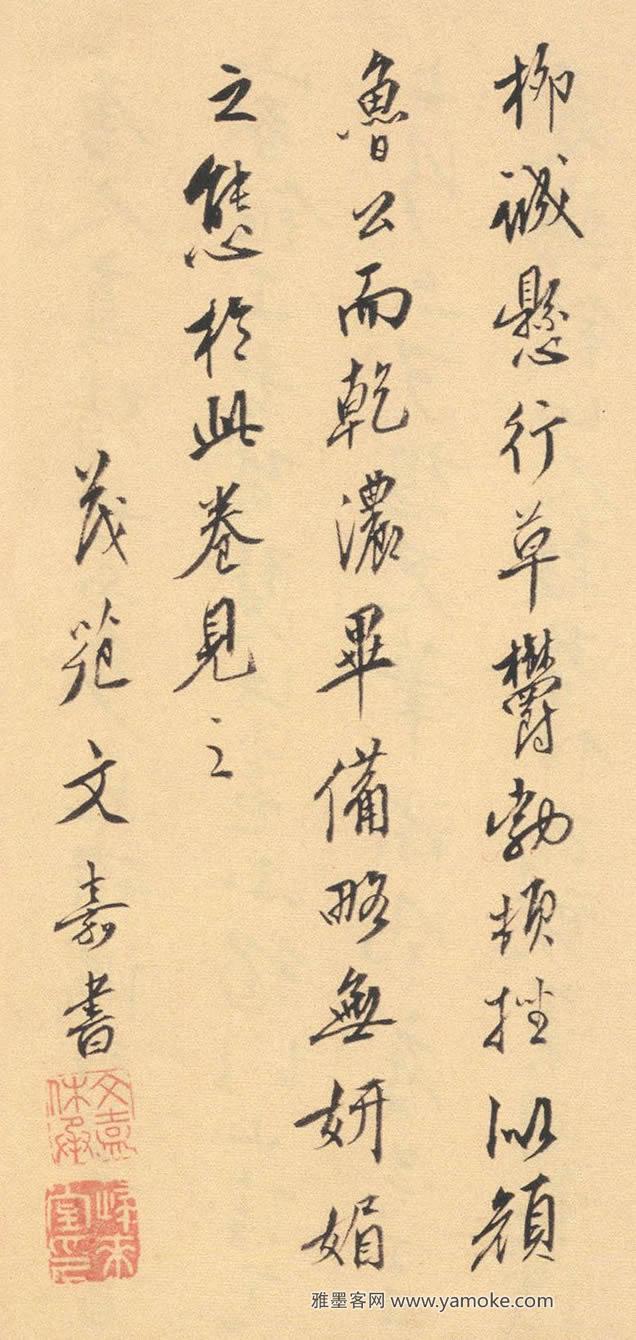 柳誠懸行草鬱勃頓挫似顏
魯公而乾濃畢備略無妍媚
之態於此卷見之
茂苑文嘉書
文嘉休承
歸來堂印
雅墨客网 www.yamoke.com